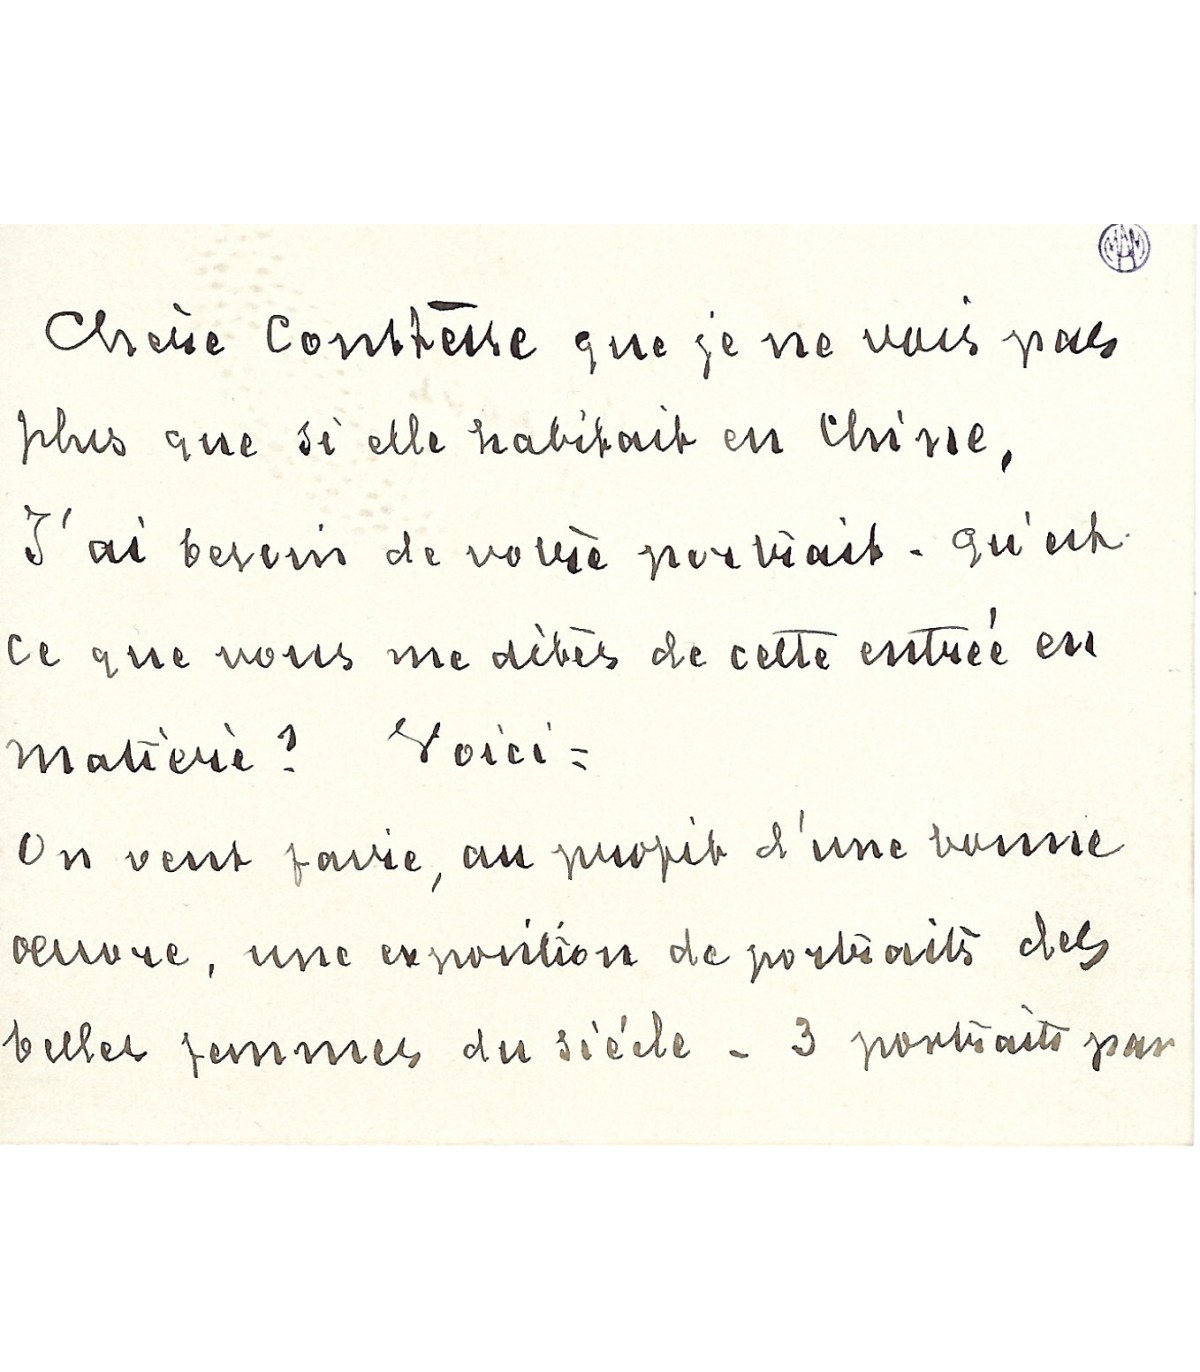 Chère Comtesse que je ne vois pas
plus que si elle habitait en Chine,
J'ai besoin de votre portrait - Qu'est
ce que vous me dites de cette entrée en
matière? Voici =
On veut faire, au profit d'une bonne
œuvre, une exposition de portraits des
belles femmes du siécle - 3 portraits par